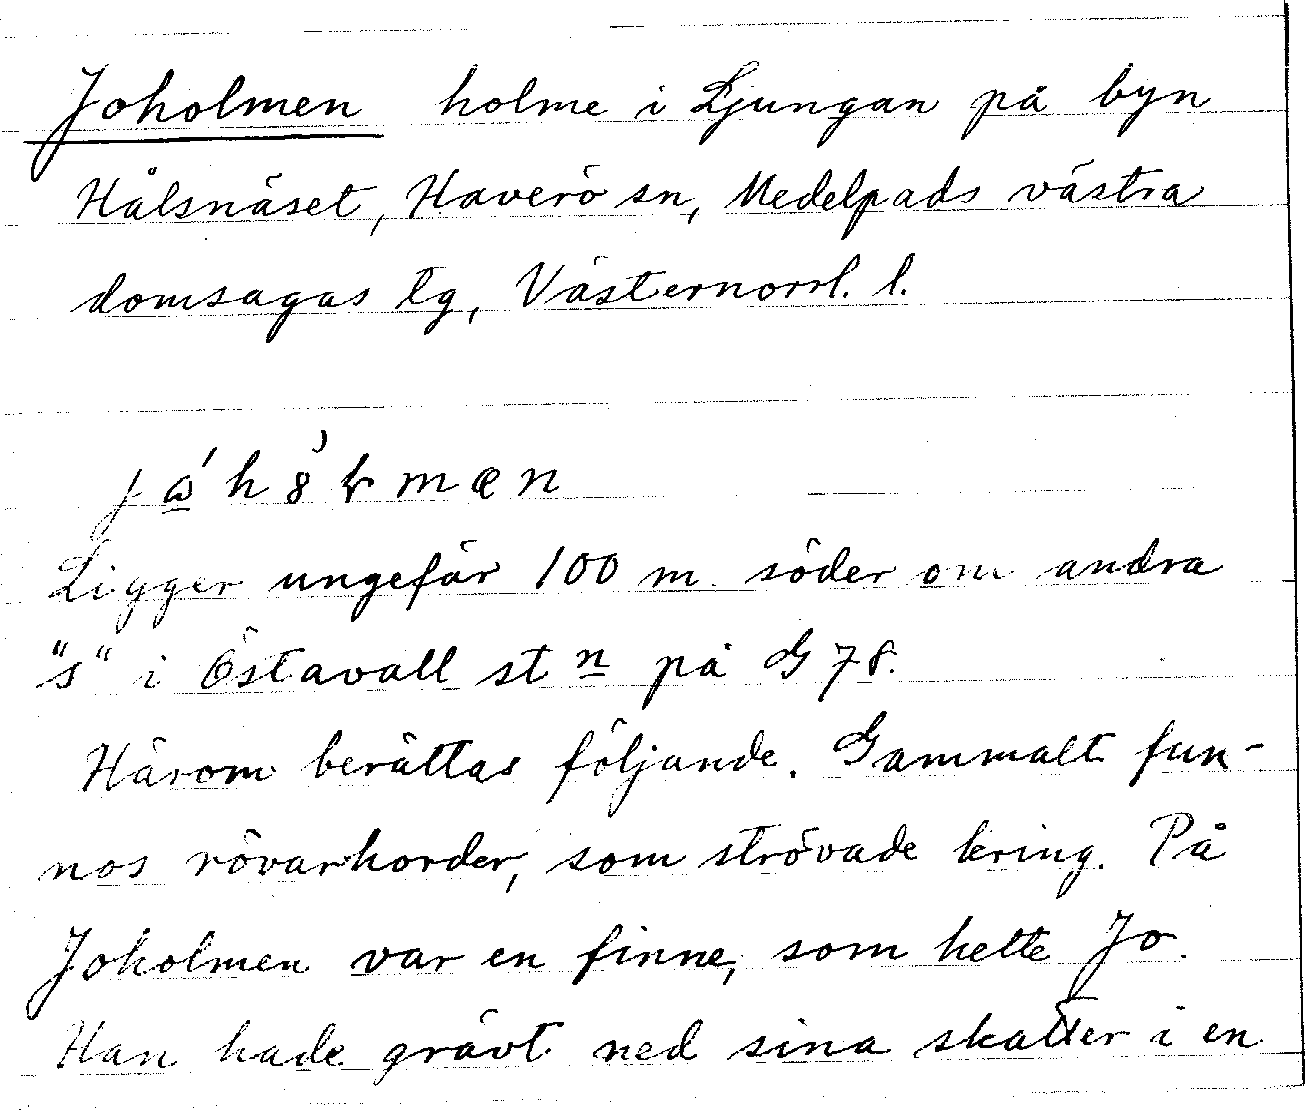 Joholmen holme i Ljungan på byn
Hålsnäset, Haverö sn, Medelpads västra
domsagas tg, Västernorrl. l.
Ligger ungefär 100 m söder om andra
"s" i Östavall st n på G 78.
Härom berättas följande. Gammalt fun-
nos rövarhorder, som strövade kring. På
Joholmen var en finne, som hette Jo.
Han hade grävt ned sina skatter i en